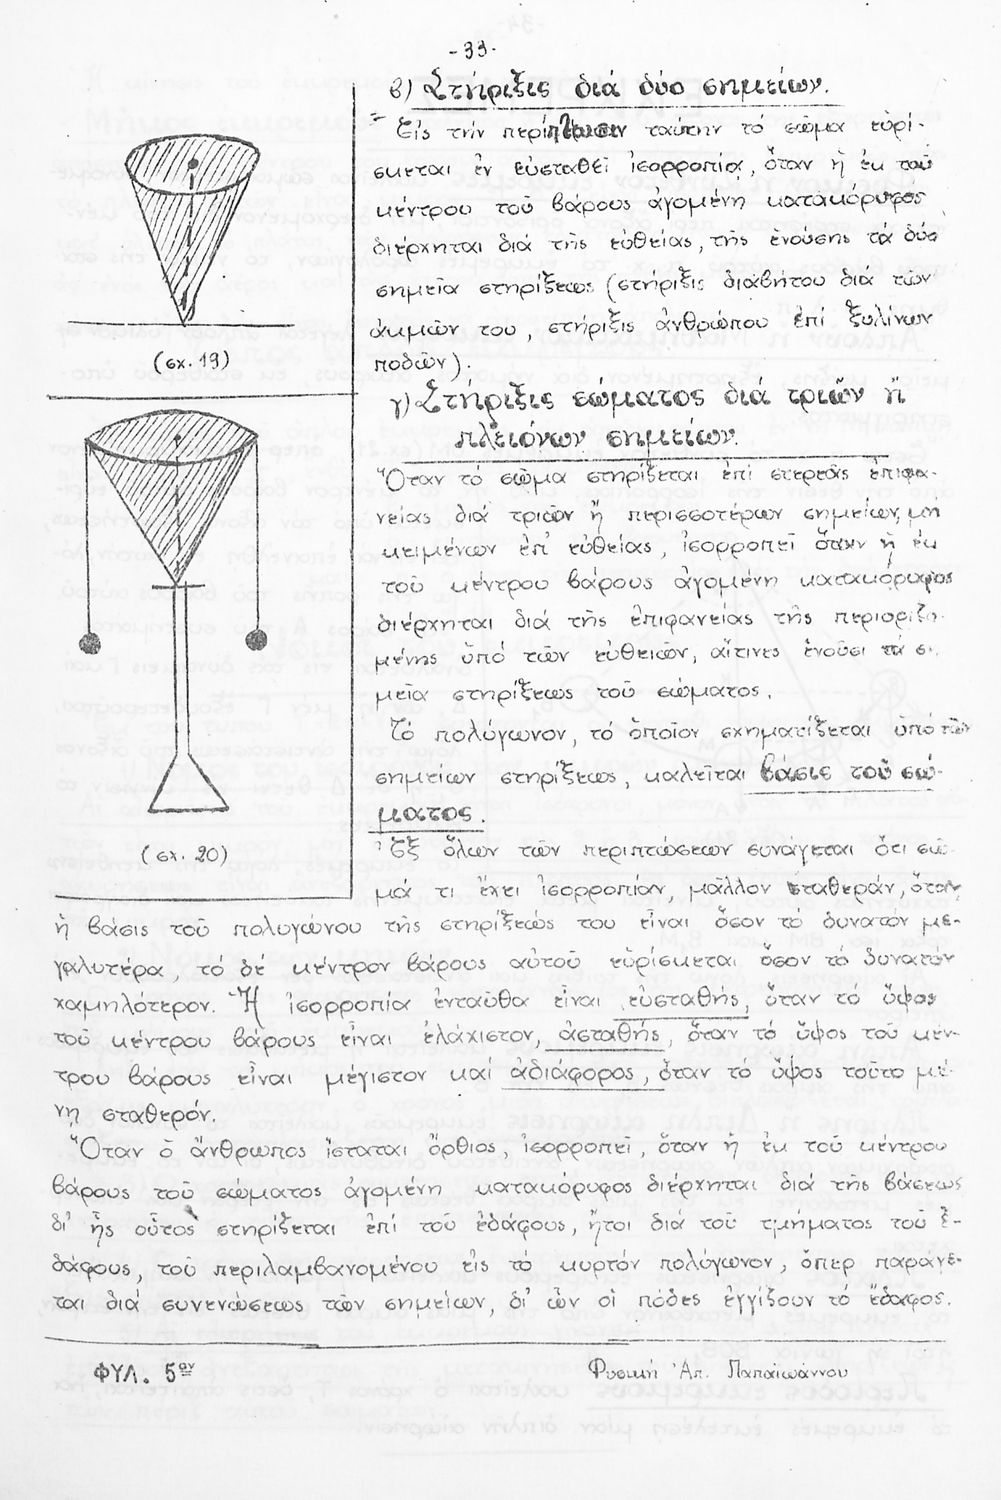 -33-
β) Στήριξις διά δύο σημείων.
Εἰς τήν περίπτωσιν ταύτην τό σῶμα εὑρί-
σκεται ἐν εὐσταθεῖ ἰσορροπίᾳ, ὅταν ἡ ἐκ τοῦ
κέντρου τοῦ βάρους ἀγομένη κατακόρυφος
διέρχηται διά τῆς εὐθείας, τῆς ἑνούσης τά δύο
σημεῖα στηρίξεως (στήριξις διαβήτου διά τῶν
ἀκμῶν του, στήριξις ἀνθρώπου ἐπί ξυλίνων
ποδῶν).
(σχ. 19)
γ) Στήριξις σώματος διά τριῶν ἤ
πλειόνων σημείων.
Ὅταν τό σῶμα στηρίζεται ἐπί στερεᾶς ἐπιφα-
νείας διά τριῶν ἤ περισσοτέρων σημείων, μή
κειμένων ἐπ' εὐθείας, ἰσορροπεῖ ὅταν ἡ ἐκ
τοῦ κέντρου βάρους ἀγομένη κατακόρυφος
διέρχηται διά τῆς ἐπιφανείας τῆς περιοριζο-
μένης ὑπό τῶν εὐθειῶν, αἵτινες ἑνοῦσι τά ση-
μεῖα στηρίξεως τοῦ σώματος.
Τό πολύγωνον, τό ὁποῖον σχηματίζεται ὑπό τῶν
σημείων στηρίξεως, καλεῖται βάσις τοῦ σώ-
ματος.
(σχ. 20)
Ἐξ ὅλων τῶν περιπτώσεων συνάγεται ὅτι σῶ-
μά τι ἔχει ἰσορροπίαν, μᾶλλον σταθεράν, ὅταν
ἡ βάσις τοῦ πολυγώνου τῆς στηρίξεώς του εἶναι ὅσον τό δυνατόν με-
γαλυτέρα, τό δέ κέντρον βάρους αὐτοῦ εὑρίσκεται ὅσον τό δυνατόν
χαμηλότερον. Ἡ ἰσορροπία ἐνταῦθα εἶναι εὐσταθής, ὅταν τό ὕψος
τοῦ κέντρου βάρους εἶναι ἐλάχιστον, ἀσταθής, ὅταν τό ὕψος τοῦ κέν-
τρου βάρους εἶναι μέγιστον καί ἀδιάφορος, ὅταν τό ὕψος τοῦτο μέ-
νῃ σταθερόν.
Ὅταν ὁ ἄνθρωπος ἵσταται ὄρθιος, ἰσορροπεῖ, ὅταν ἡ ἐκ τοῦ κέντρου
βάρους τοῦ σώματος ἀγομένη κατακόρυφος διέρχηται διά τῆς βάσεως
δι' ἧς οὗτος στηρίζεται ἐπί τοῦ ἐδάφους, ἤτοι διά τοῦ τμήματος τοῦ ἐ-
δάφους, τοῦ περιλαμβανομένου εἰς τό κυρτόν πολύγωνον, ὅπερ παράγε-
ται διά συνενώσεως τῶν σημείων, δι' ὧν οἱ πόδες ἐγγίζουν τό ἔδαφος.
ΦΥΛ. 5ον
Φυσική Ἀπ. Παπαϊωάννου